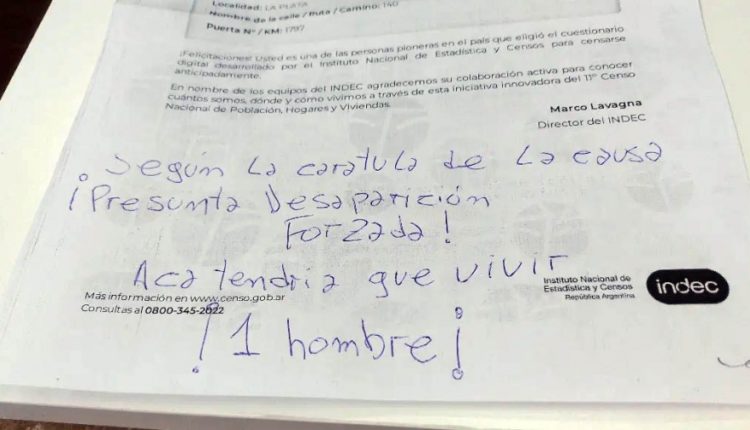 Localidad: LA PLATA
Nombre de la calle / Ruta / Camino: 140
Puerta N° / KM: 1797
¡Felicitaciones! Usted es una de las personas pioneras en el país que eligió el cuestionario
digital desarrollado por el Instituto Nacional de Estadística y Censos para censarse
anticipadamente.
En nombre de los equipos del INDEC agradecemos su colaboración activa para conocer
cuántos somos, dónde y cómo vivimos a través de esta iniciativa innovadora del 11° Censo
Nacional de Población, Hogares y Viviendas.
Marco Lavagna
Director del INDEC
Según La caratula de La causa
¡Presunta Desaparición
Forzada!
Aca tendria que vivir
¡1 hombre!
Más información en www.censo.gob.ar
Consultas al 0800-345-2022
Instituto Nacional de
Estadística y Censos
República Argentina
indec